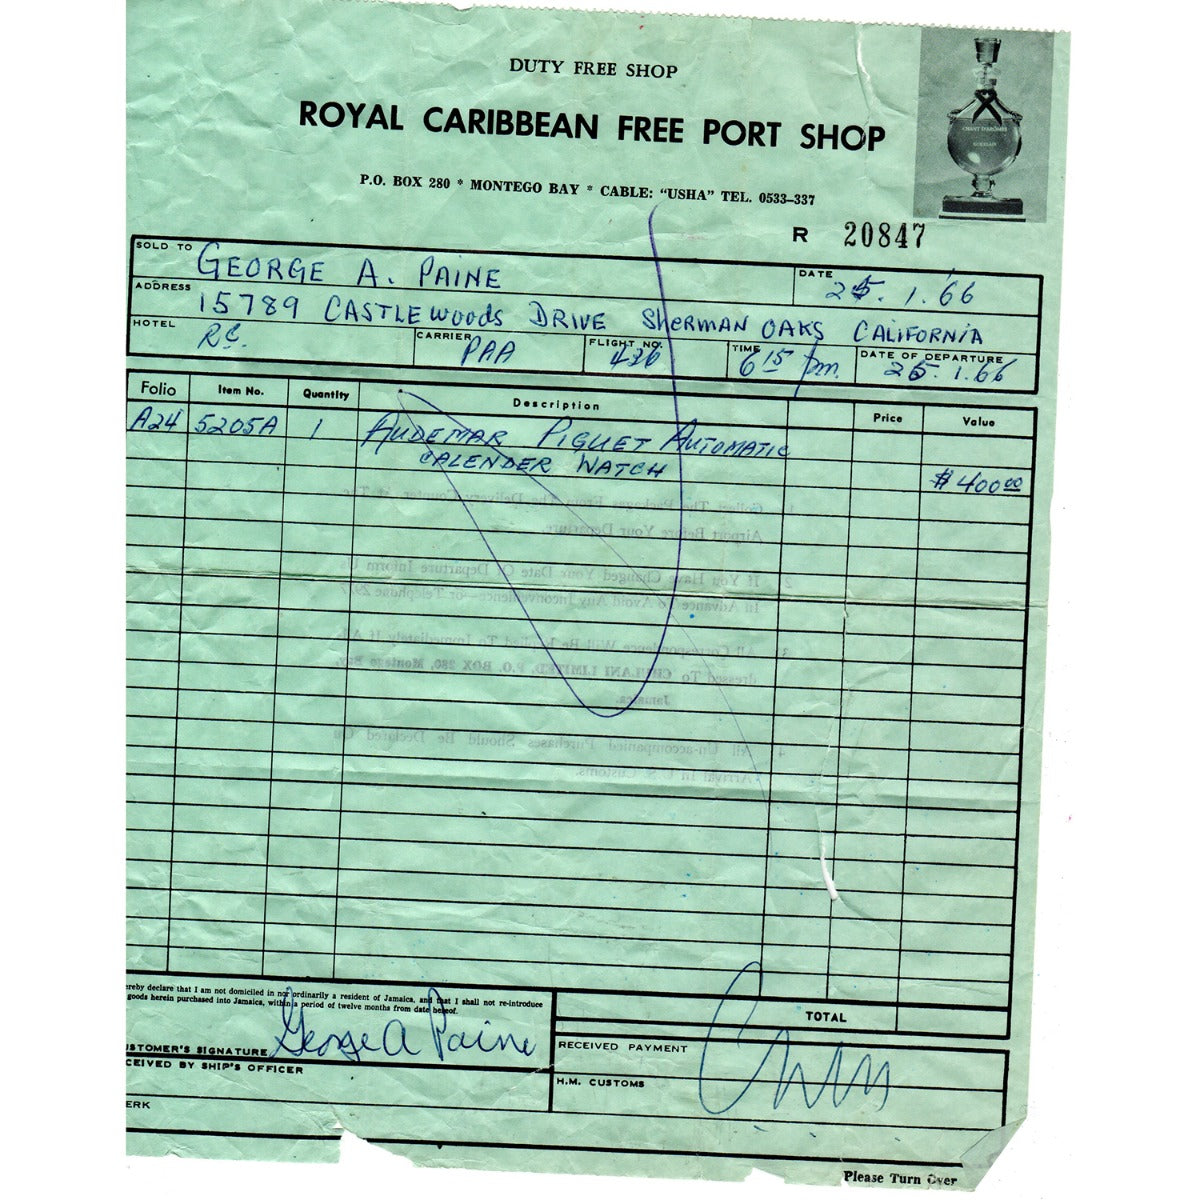 DUTY FREE SHOP
ROYAL CARIBBEAN FREE PORT SHOP
P.O. BOX 280 * MONTEGO BAY * CABLE: "USHA" TEL. 0533–337
CHANT D'ARÔMES
GUERLAIN
R 20847
SOLD TO GEORGE A. PAINE DATE 25. 1. 66
ADDRESS 15789 CASTLEWOODS DRIVE SHERMAN OAKS CALIFORNIA
HOTEL R.C. CARRIER PAA FLIGHT NO. 426 TIME 6 15 pm. DATE OF DEPARTURE 25. 1. 66
Folio Item No. Quantity Description Price Value
A24 5205A 1 AUDEMAR PIGUET AUTOMATIC
CALENDER WATCH $400 00
Collect The Packages From The Delivery Counter, at The
Airport Before Your Departure.
2. If You Have Changed Your Date Of Departure Inform Us
In Advance To Avoid Any Inconvenience—or Telephone 2977
3. All Correspondence Will Be Replied To Immediately If Ad-
dressed To CHULANI LIMITED, P.O. BOX 280, Montego Bay,
Jamaica.
4. All Un-accompanied Purchases Should Be Declared On
Arrival In U.S. Customs.
ereby declare that I am not domiciled in nor ordinarily a resident of Jamaica, and that I shall not re-introduce
goods herein purchased into Jamaica, within a period of twelve months from date hereof.
TOTAL
STOMER'S SIGNATURE George A Paine
RECEIVED PAYMENT
CEIVED BY SHIP'S OFFICER
H.M. CUSTOMS
ERK
Please Turn Over